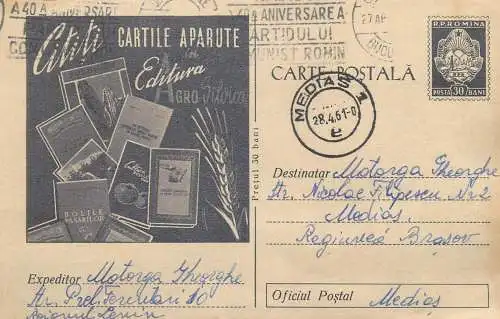 A 40 A ANIVERSARE
A 40 A ANIVERSAREA
PARTIDULUI
COMUNIST ROMIN
27 AP
Citiți CARTILE APARUTE
în
Editura
AGRO-Silvică
BOLILE
PASARILOR
Prețul 30 bani
CARTE POSTALĂ
R.P. ROMINA
POSTA 30 BANI
MEDIAȘ 1
28.4.61-0
Destinatar Motorga Gheorghe
Str. Nicolae Filipescu Nr 2
Mediaș
Regiunea Brașov
Expeditor Motorga Gheorghe
Str. 10
Raionul Lenin
Oficiul Poștal Mediaș